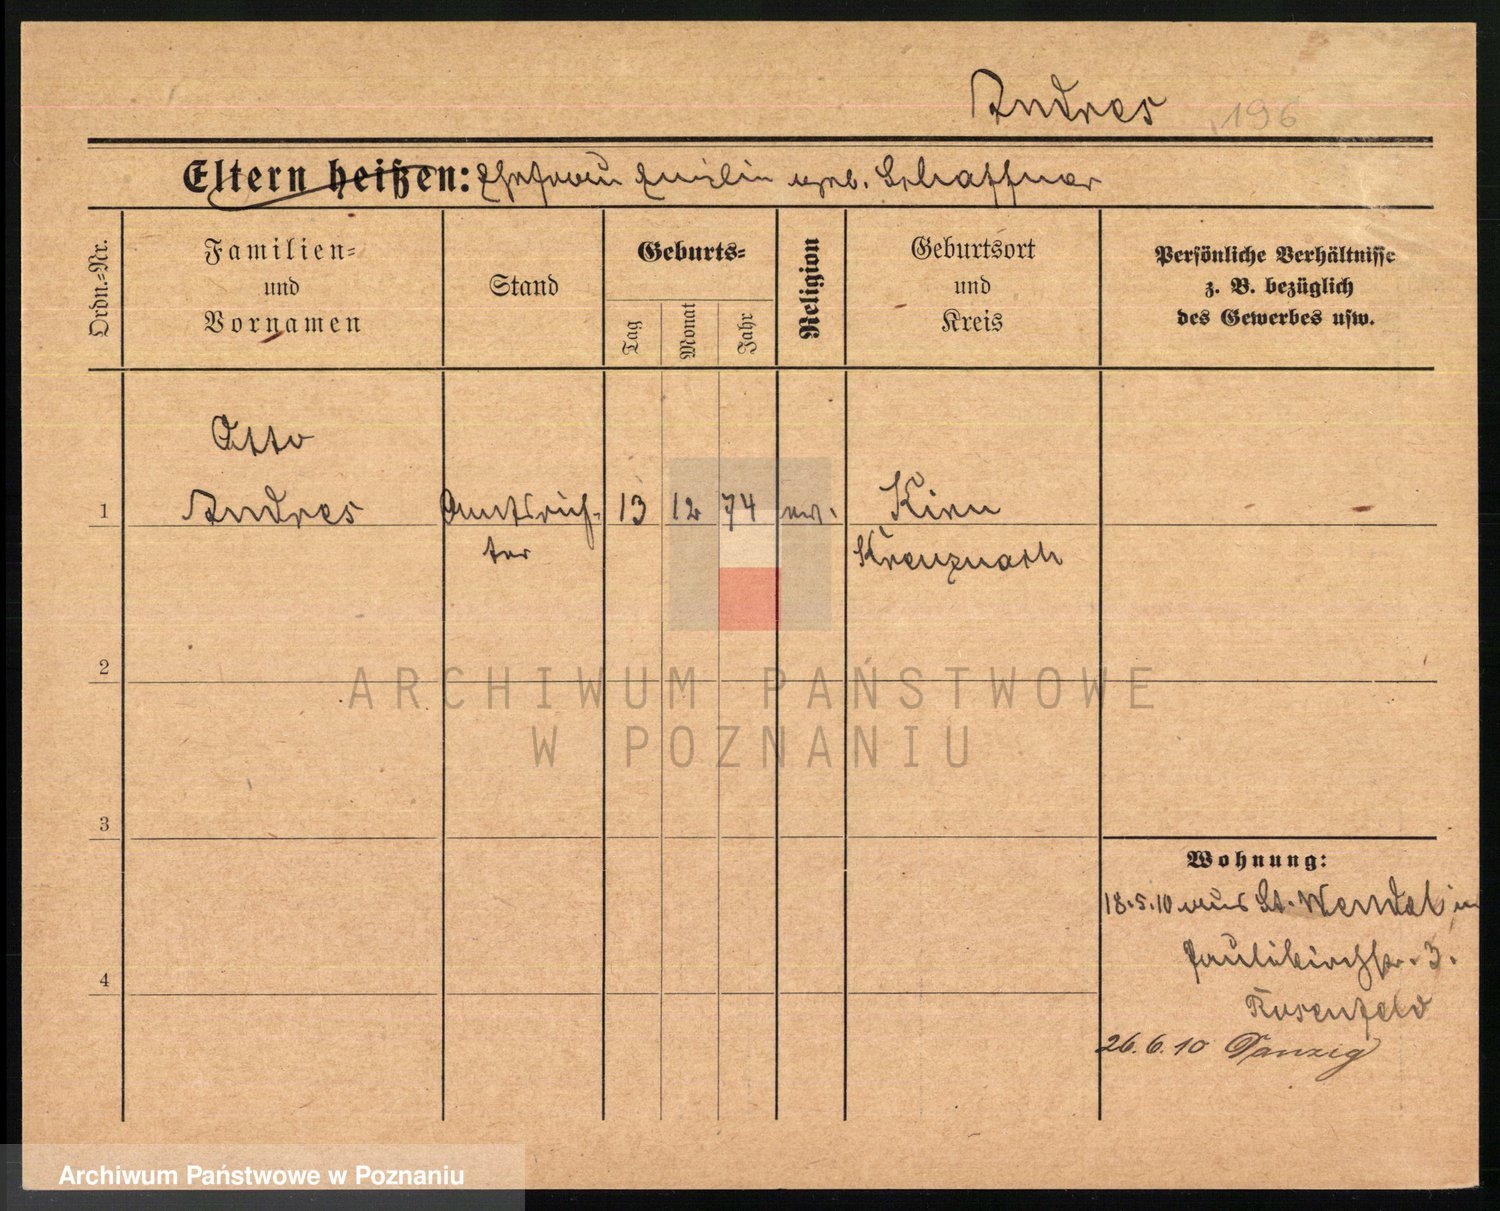 Andres 196
Eltern heißen: Ehefrau Emilie geb. Schaffner
Ordn.-Nr.
Familien-
und
Vornamen
Stand
Geburts-
Tag
Monat
Jahr
Religion
Geburtsort
und
Kreis
Persönliche Verhältnisse
z. B. bezüglich
des Gewerbes usw.
Otto
1 Andres Amtsrich- 13 12 74 ev. Kirn
ter Kreuznach
2
ARCHIWUM PAŃSTWOWE
W POZNANIU
3
Wohnung:
18.5.10 aus St. Wendel in
Paulikirchstr. 3.
4
Rosenfeld
26.6.10 Danzig
Archiwum Państwowe w Poznaniu